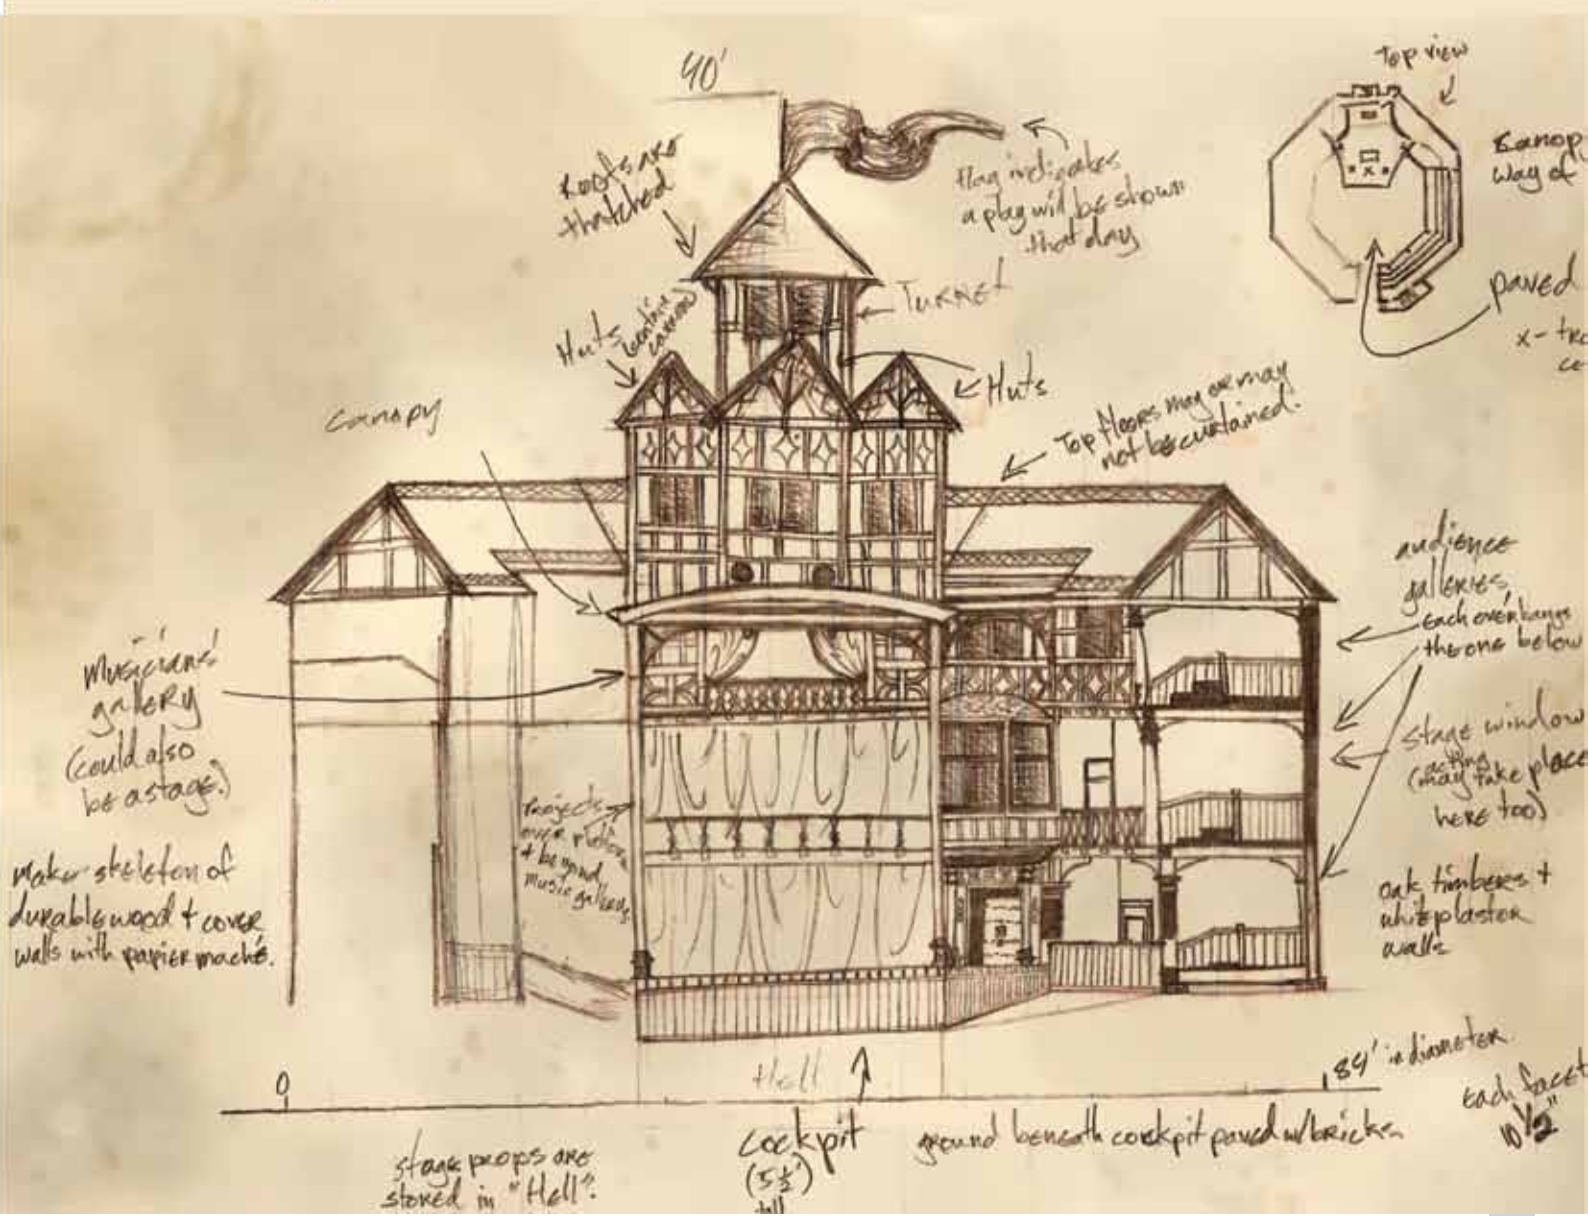 40'
Top view
Roofs are
thatched
flag indicates
a play will be shown
that day
Canop
way of
paved
x-
Turret
Huts
contain
cannon
Huts
Canopy
Top floors may or may
not be curtained.
audience
galleries,
each overhangs
the one below
Musicians'
gallery
(could also
be a stage.)
stage window
(acting
may take place
here too)
Projects
over
+ beyond
music gallery
Make skeleton of
durable wood + cover
walls with papier maché.
oak timbers +
white plaster
walls
Hell
0
84' in diameter
Each facet
10 1/2"
stage props are
stored in "Hell".
Cockpit
(5½')
tall
ground beneath cockpit paved w/bricks